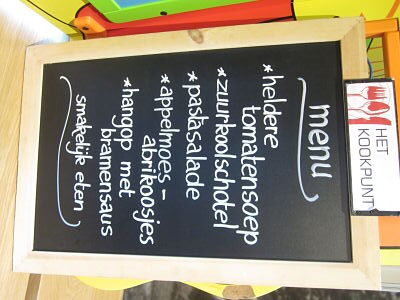 HET
KOOKPUNT
menu
*heldere
tomatensoep
*zuurkoolschotel
*pastasalade
*appelmoes-
abrikoosjes
*hangop met
bramensaus
smakelijk eten